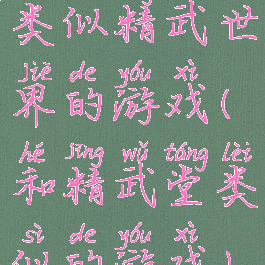 类似精武世
jiè de yóu xì
界的游戏(
hé jīng wǔ táng lèi
和精武堂类
sì de yóu xì
似的游戏)